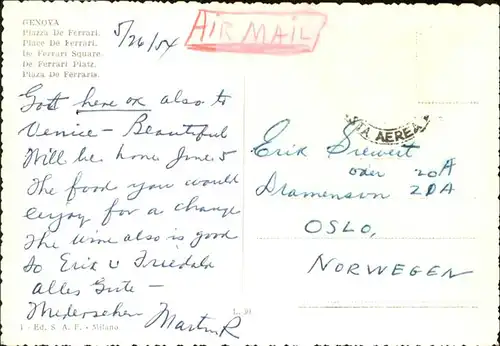 GENOVA
Piazza De Ferrari.
Place De Ferrari.
De Ferrari Square.
De Ferrari Platz.
Plaza De Ferraris.
5/26/54
AIR MAIL
Got here ok also to
Venice – Beautiful
Will be home June 5
The food you would
enjoy for a change
The wine also is good
So Erik u Friedala
alles Gute –
Wiedersehen Martin R
VIA AEREA
Erik Siewert
oder 20A
Dramensvn 20A
OSLO,
NORWEGEN
L. 30
1 - Ed. S. A. F. - Milano